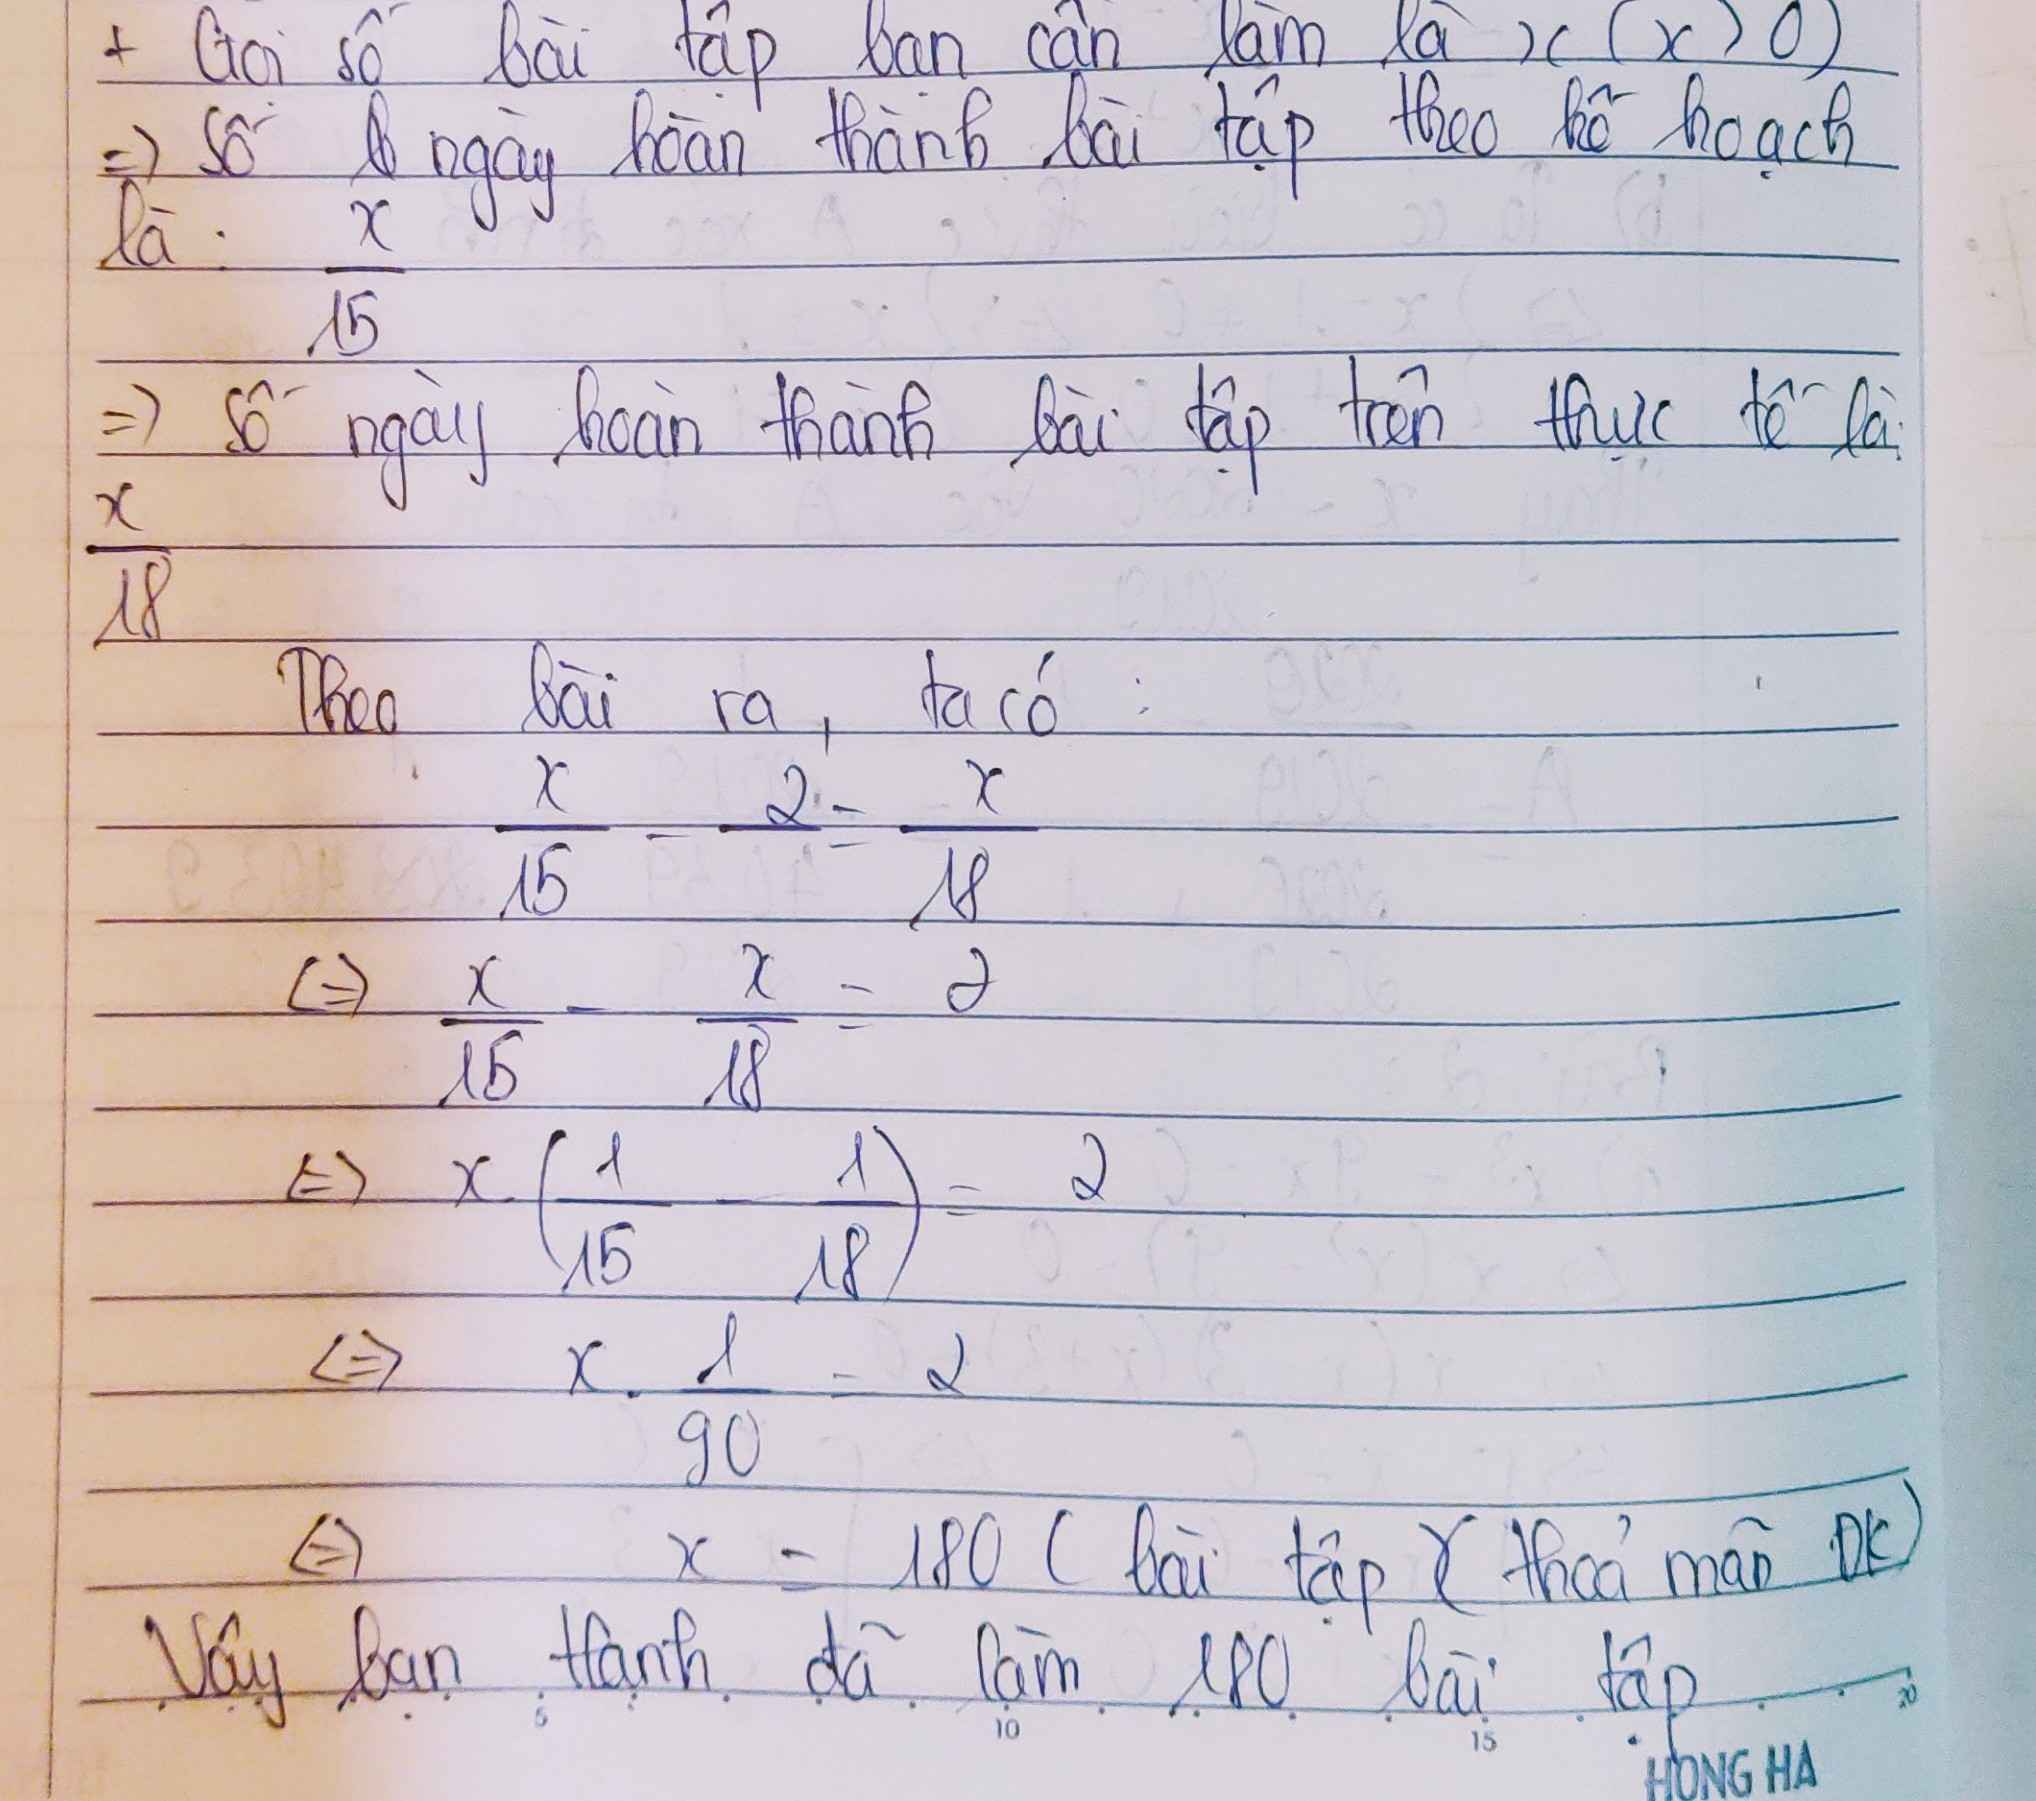 + Gọi số bài tập bạn cần làm là x (x > 0)
=> Số ngày hoàn thành bài tập theo kế hoạch
là: x/15
=> Số ngày hoàn thành bài tập trên thực tế là:
x/18
Theo bài ra, ta có:
x/15 - 2 = x/18
<=> x/15 - x/18 = 2
<=> x (1/15 - 1/18) = 2
<=> x . 1/90 = 2
<=> x = 180 (bài tập) (thoả mãn ĐK)
Vậy bạn Hạnh đã làm 180 bài tập
5 10 15 20
HONG HA